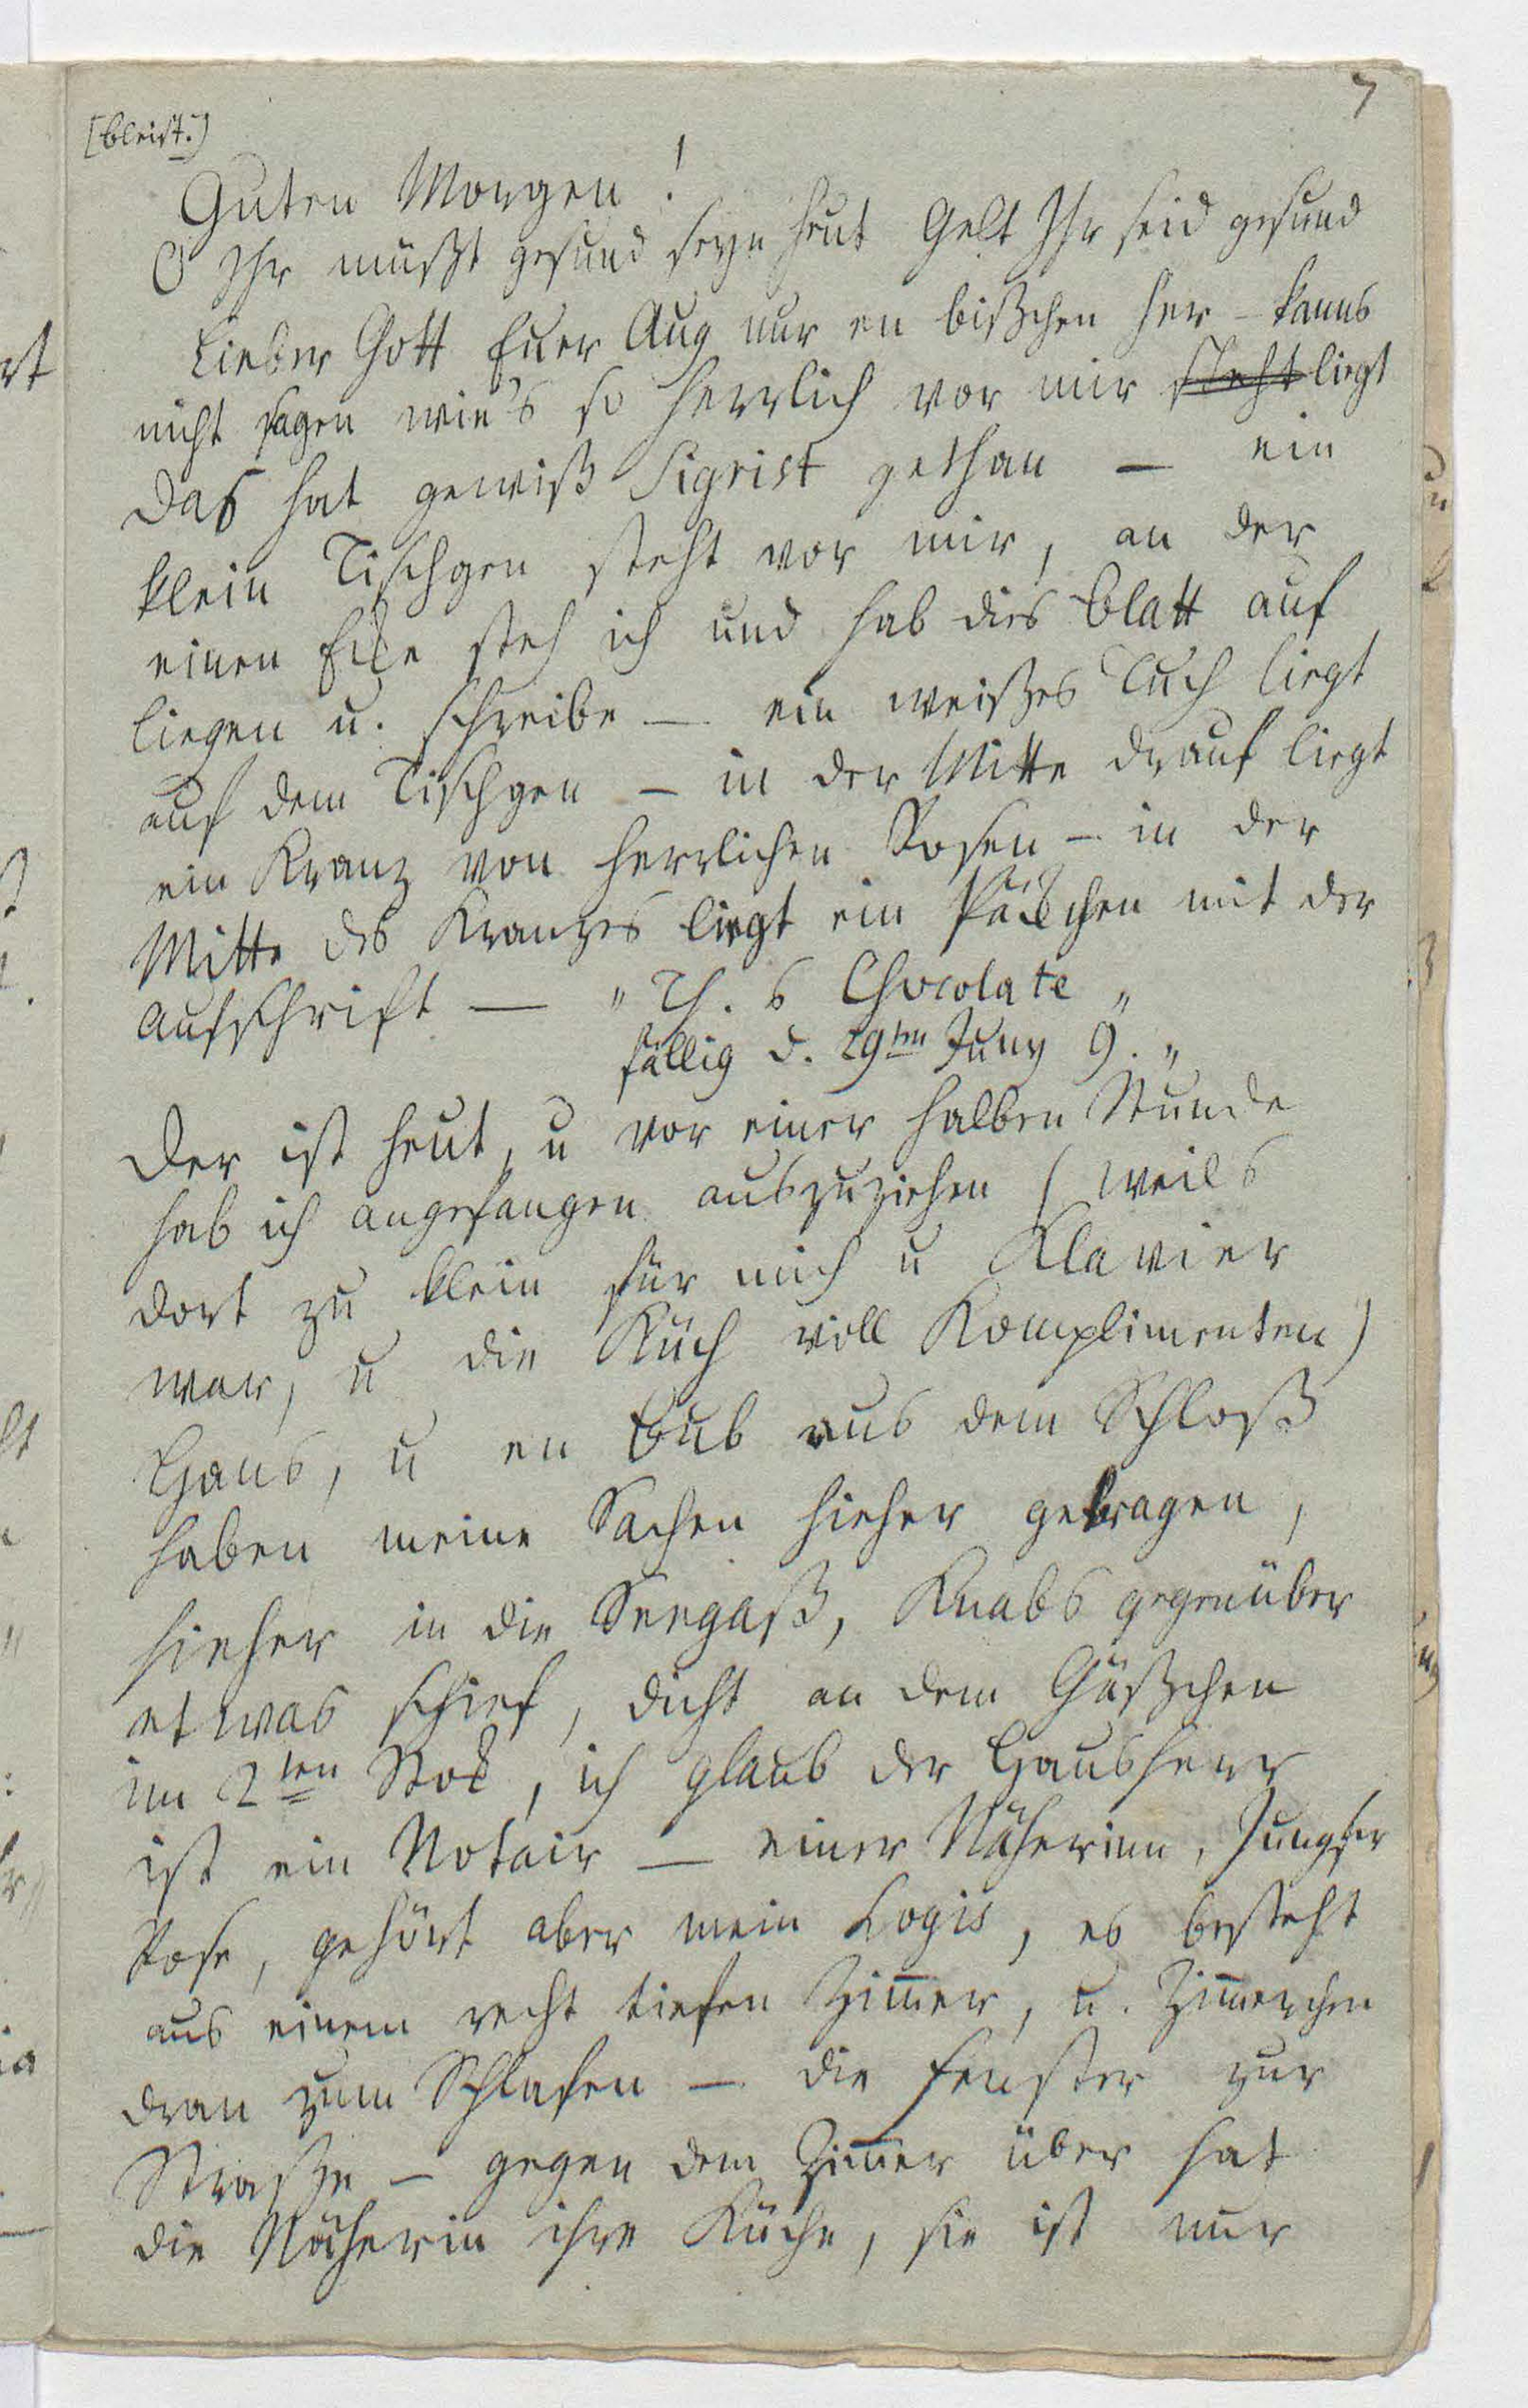 7
[bleist.]
Guten Morgen!
O Ihr müßt gesund seyn heut Gelt Ihr seid gesund
Lieber Gott Euer Aug nur en bißchen her – kanns
nicht sagen wie's so herrlich vor mir steht liegt
das hat gewiß Sigrist gethan — ein
klein Tischgen steht vor mir, an der
einen Eke steh ich und hab dies Blatt auf
liegen u. schreibe — ein weißes Tuch liegt
auf dem Tischgen – in der Mitte drauf liegt
ein Kranz von herrlichen Rosen – in der
Mitte des Kranzes liegt ein Päkchen mit der
Aufschrift — "Th.s Chocolate"
fällig d. 29ten Juny 9."
Der ist heut, u vor einer halben Stunde
hab ich angefangen auszuziehen (weils
dort zu klein für mich u Klavier
war, u die Küch voll Komplimenten)
Hans, u en Bub aus dem Schloß
haben meine Sachen hieher getragen,
hieher in die Seegaß, Knabs gegenüber
etwas schief, dicht an dem Gäßchen
im 2ten Stok, ich glaub der Hausherr
ist ein Notair — einer Näherinn, Jungfer
Rose, gehört aber mein Logis, es besteht
aus einem recht tiefen Zim̄er, u. Zim̄erchen
dran zum Schlafen — die Fenster zur
Straße – gegen dem Zim̄er über hat
die Näherin ihre Küche, sie ist nur